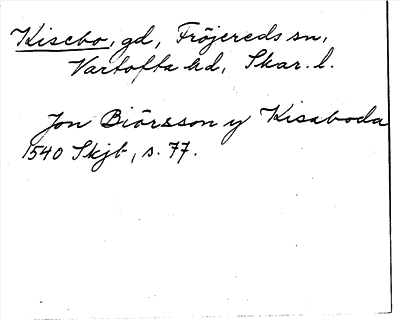 Kisebo, gd, Fröjereds sn,
Vartofta hd, Skar. l.
Jon Biörsson y Kisaboda
1540 Skjb, s. 77.